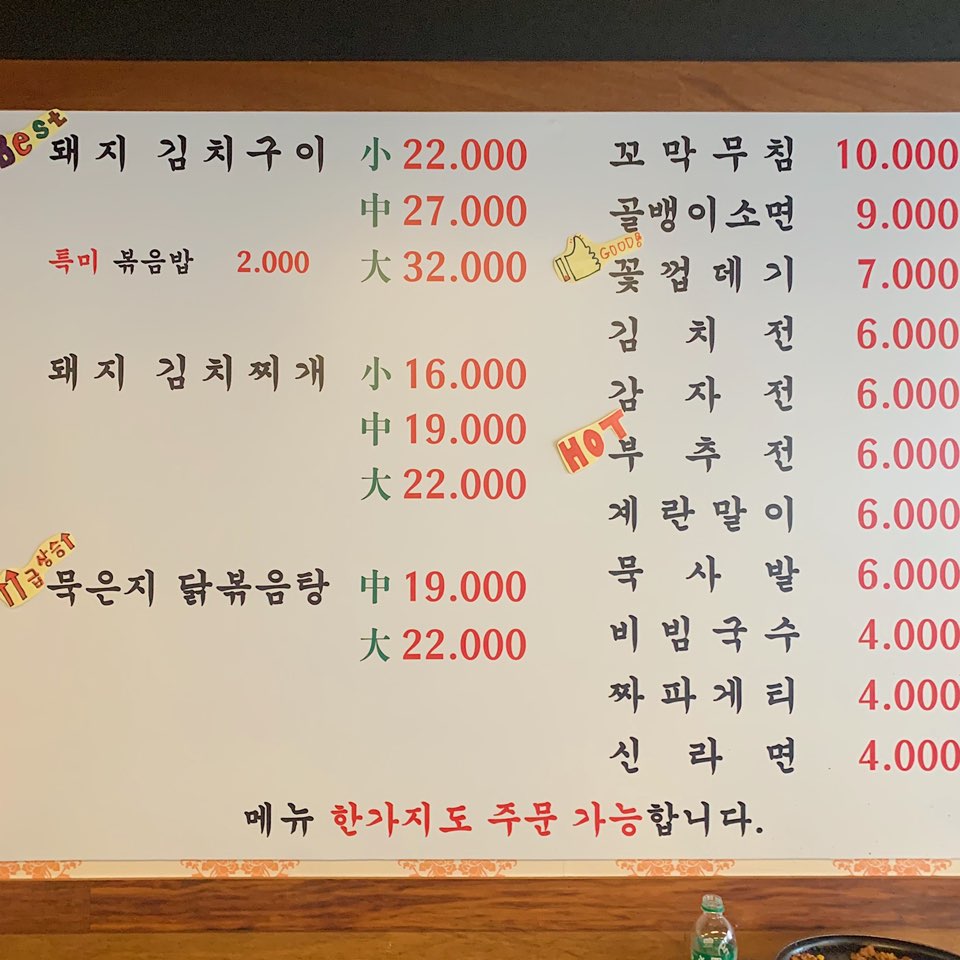 Best
돼지 김치구이 小 22.000
中 27.000
특미 볶음밥 2.000 大 32.000
돼지 김치찌개 小 16.000
中 19.000
大 22.000
급상승
묵은지 닭볶음탕 中 19.000
大 22.000
꼬막무침 10.000
골뱅이소면 9.000
GOOD
꽃껍데기 7.000
김치전 6.000
감자전 6.000
HOT
부추전 6.000
계란말이 6.000
묵사발 6.000
비빔국수 4.000
짜파게티 4.000
신라면 4.000
메뉴 한가지도 주문 가능합니다.